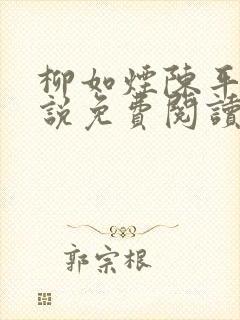 柳如煙陳平
說免費閱讀
郭宗根